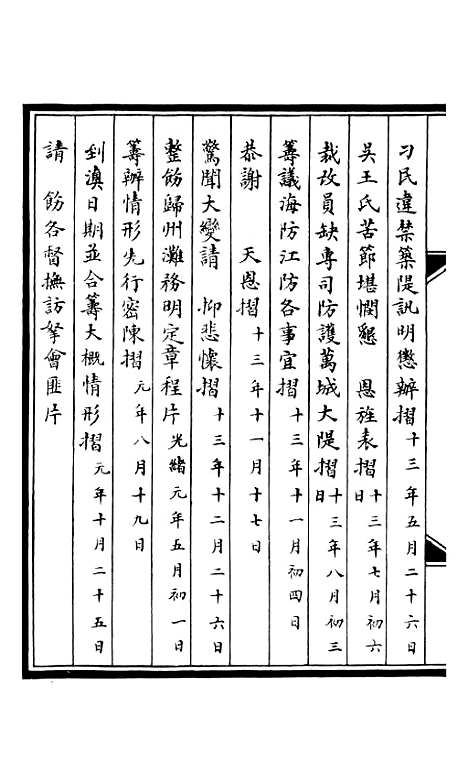 刁民違禁築隄訊明懲辦摺十三年五月二十六日
吳王氏苦節堪憫懇　恩旌表摺十三年七月初六日
裁改員缺專司防護萬城大隄摺十三年八月初三日
籌議海防江防各事宜摺十三年十一月初四日
恭謝　天恩摺十三年十一月十七日
驚聞大變請　抑悲懷摺十三年十二月二十六日
整飭歸州灘務明定章程片光緒元年五月初一日
籌辦情形先行密陳摺元年八月十九日
到滇日期並合籌大概情形摺元年十月二十五日
請　飭各督撫訪拏會匪片